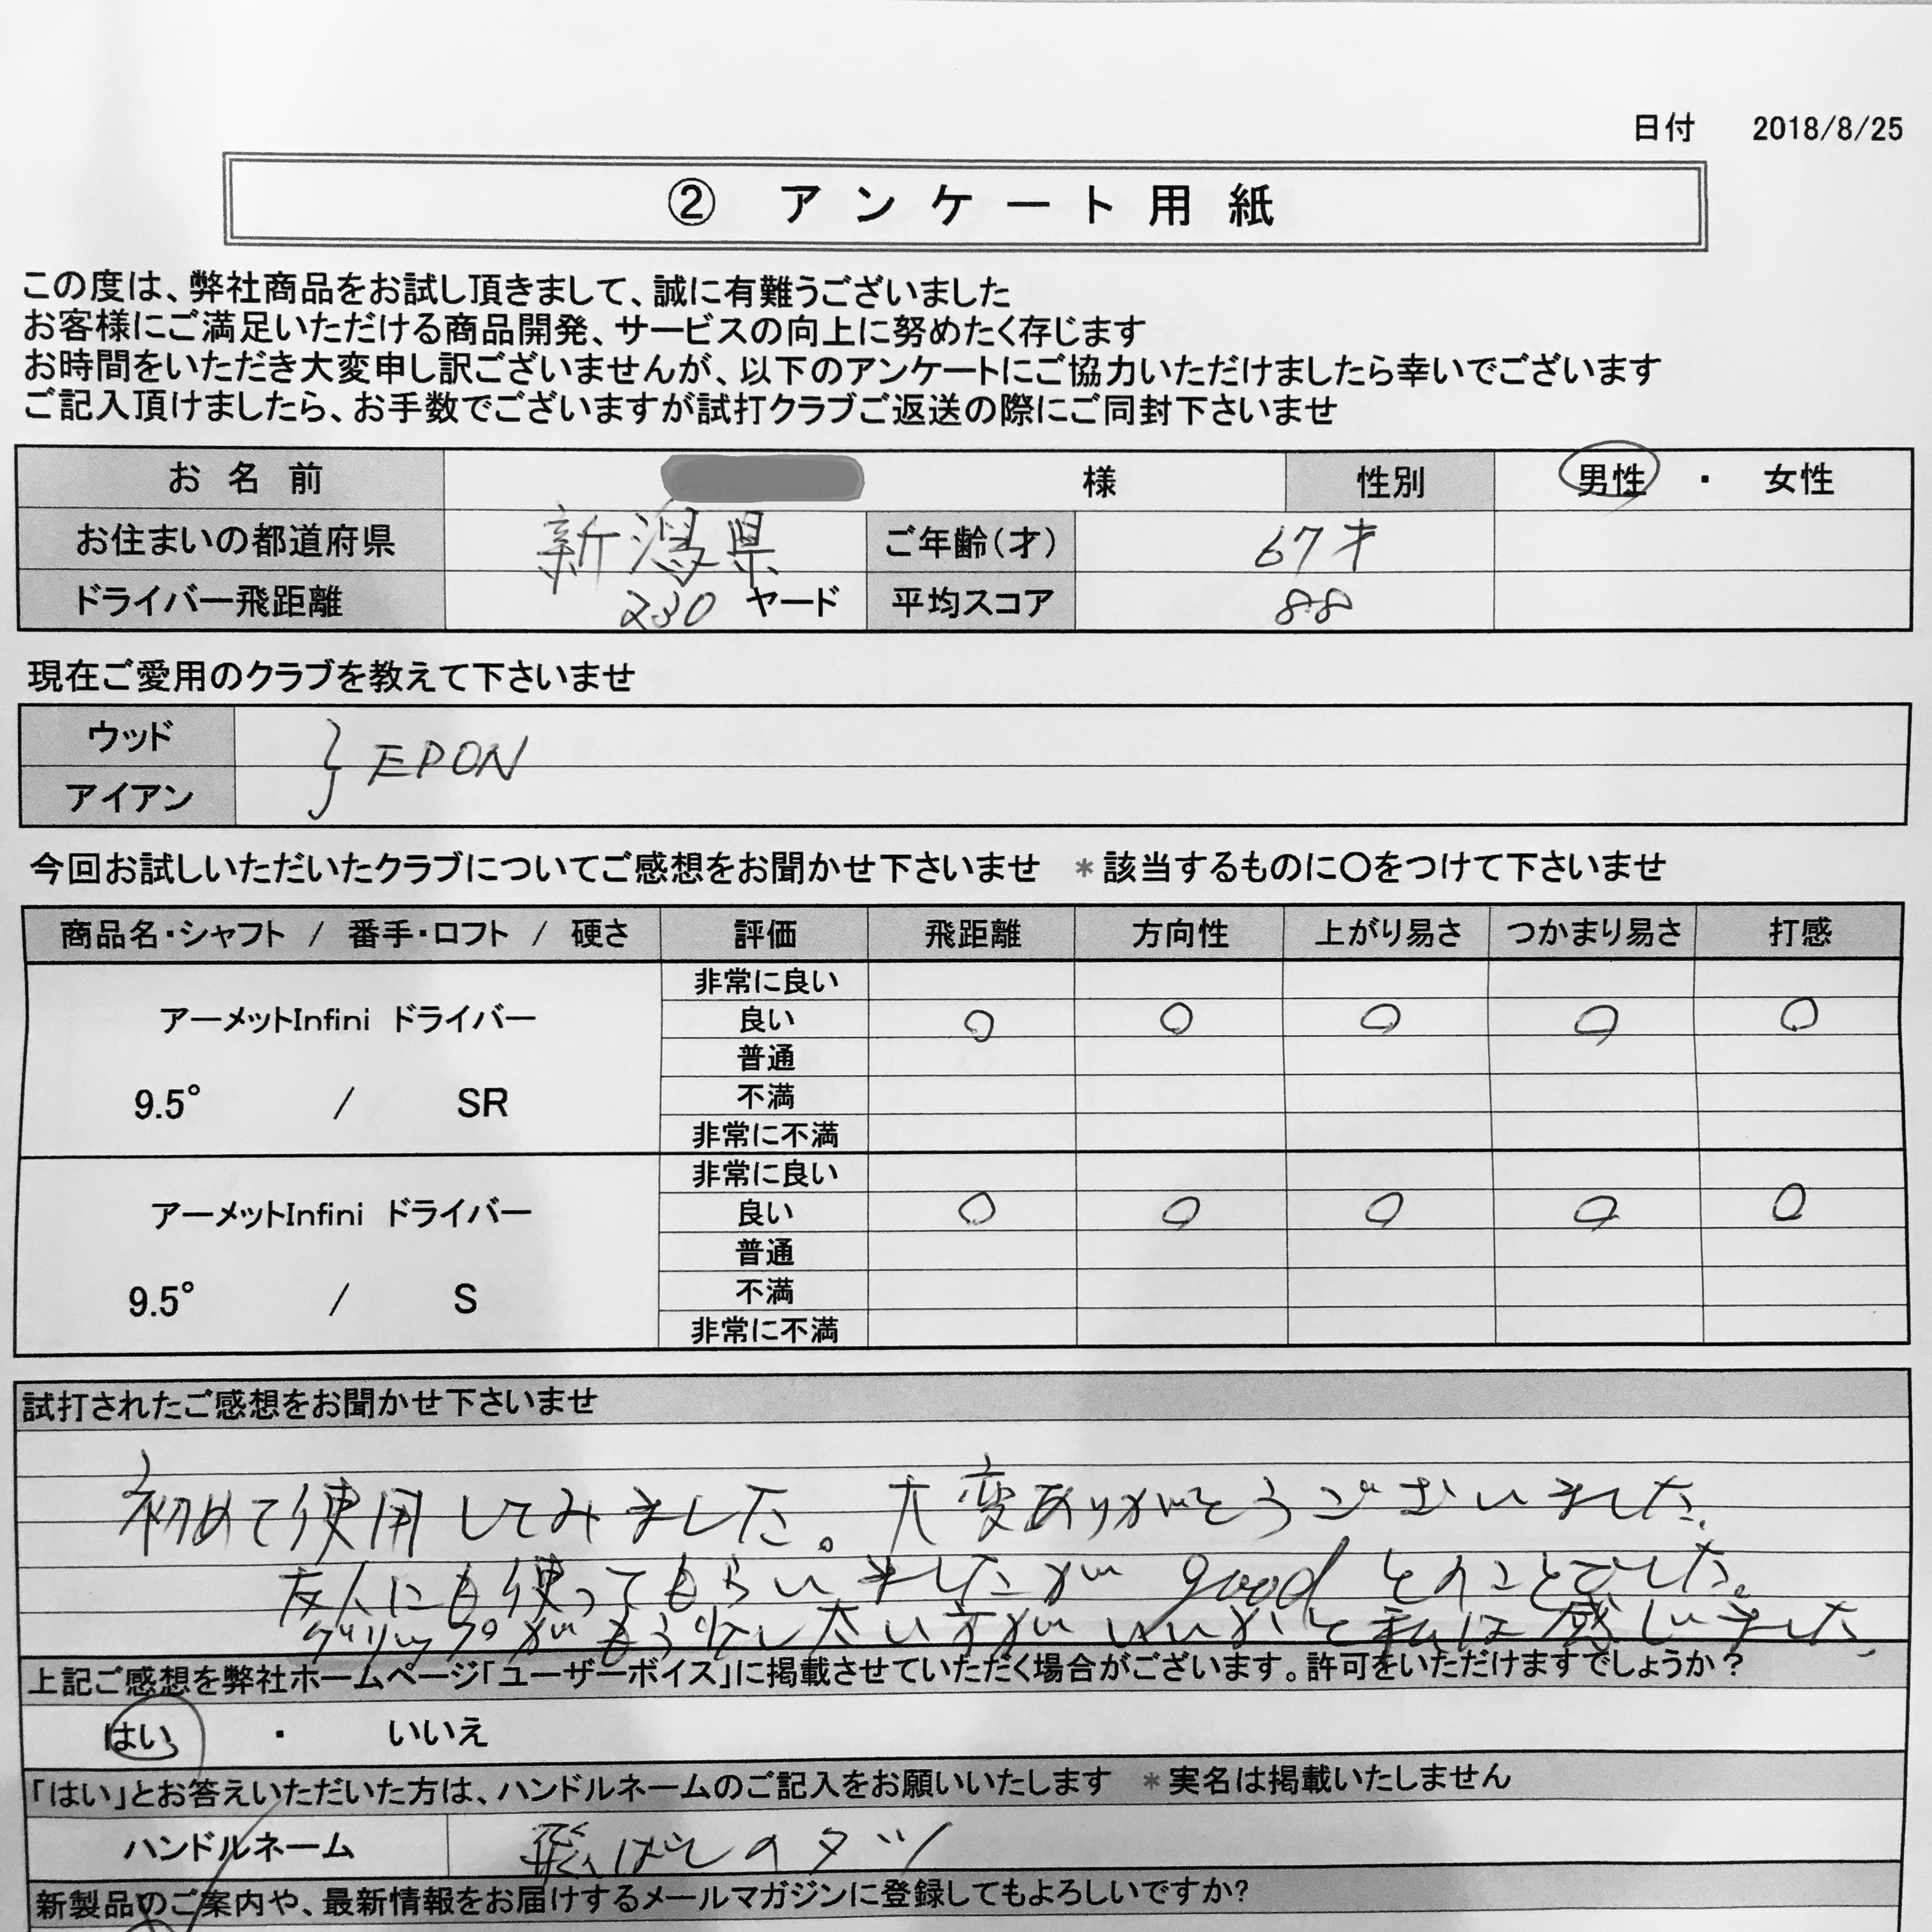 日付 2018/8/25
② アンケート用紙
この度は、弊社商品をお試し頂きまして、誠に有難うございました
お客様にご満足いただける商品開発、サービスの向上に努めたく存じます
お時間をいただき大変申し訳ございませんが、以下のアンケートにご協力いただけましたら幸いでございます
ご記入頂けましたら、お手数でございますが試打クラブご返送の際にご同封下さいませ
お名前 様 性別 男性 ・ 女性
お住まいの都道府県 新潟県 ご年齢(才) 67才
ドライバー飛距離 230 ヤード 平均スコア 88
現在ご愛用のクラブを教えて下さいませ
ウッド
} EPON
アイアン
今回お試しいただいたクラブについてご感想をお聞かせ下さいませ *該当するものに〇をつけて下さいませ
商品名・シャフト / 番手・ロフト / 硬さ 評価 飛距離 方向性 上がり易さ つかまり易さ 打感
非常に良い
アーメットInfini ドライバー 良い 〇 〇 〇 〇 〇
普通
9.5° / SR 不満
非常に不満
非常に良い
アーメットInfini ドライバー 良い 〇 〇 〇 〇 〇
普通
9.5° / S 不満
非常に不満
試打されたご感想をお聞かせ下さいませ
初めて使用してみました。大変ありがとうございました.
友人にも使ってもらいましたが good とのことでした。
グリップがもう少し太い方がいいかと私は感じました.
上記ご感想を弊社ホームページ「ユーザーボイス」に掲載させていただく場合がございます。許可をいただけますでしょうか?
はい ・ いいえ
「はい」とお答えいただいた方は、ハンドルネームのご記入をお願いいたします *実名は掲載いたしません
ハンドルネーム 飛ばしのタツ
新製品のご案内や、最新情報をお届けするメールマガジンに登録してもよろしいですか?